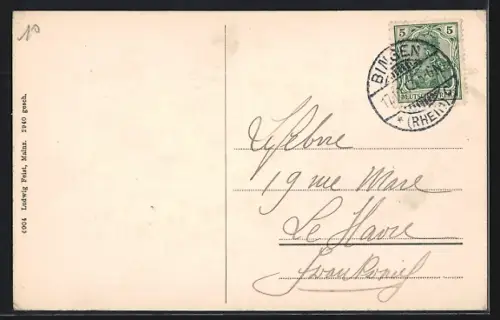 10
5 5
DEUTSCHES REICH
BINGEN
* (RHEIN)
Lefebvre
19 rue Mare
Le Havre
Frankreich
4004 Ludwig Feist, Mainz. 1940 gesch.